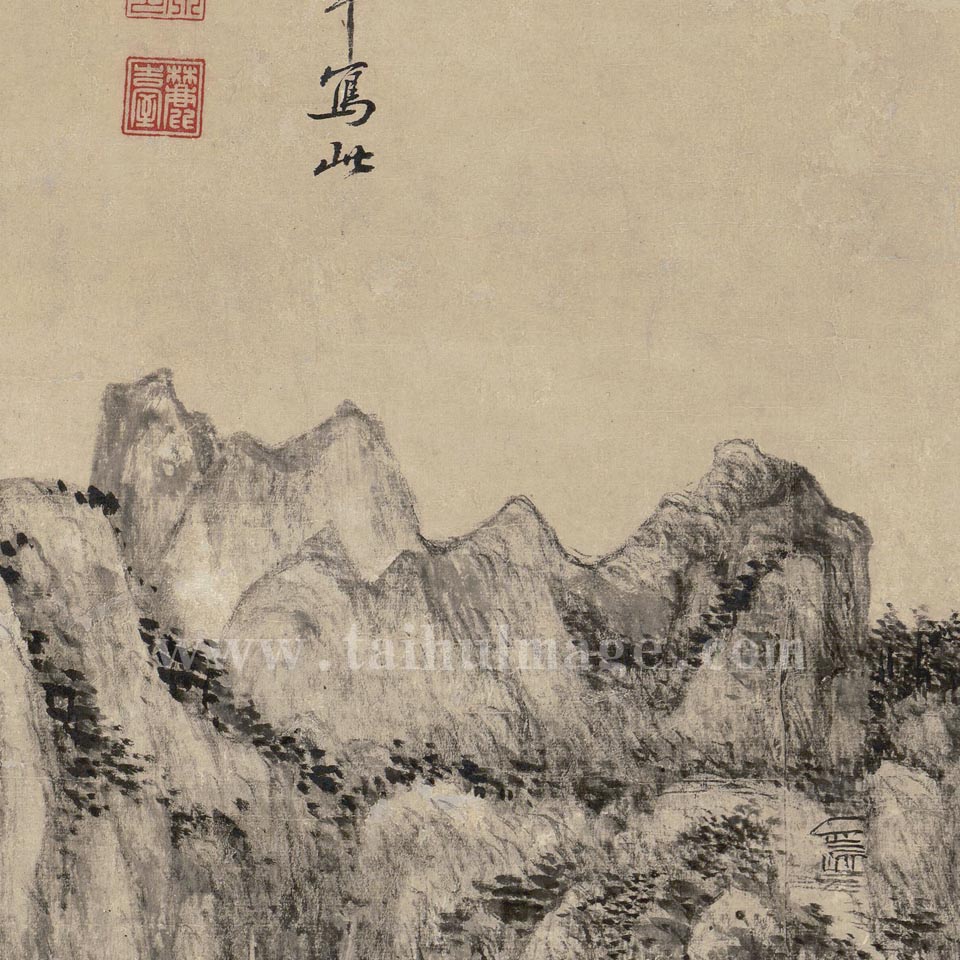 寫此
麓臺
www.taihuImage.com